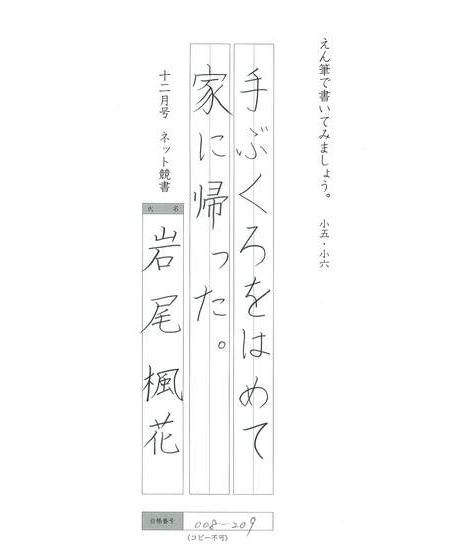 えん筆で書いてみましょう。 小五・小六
手ぶくろをはめて
家に帰った。
十二月号 ネット競書
氏名
岩尾楓花
台帳番号 008-209
(コピー不可)